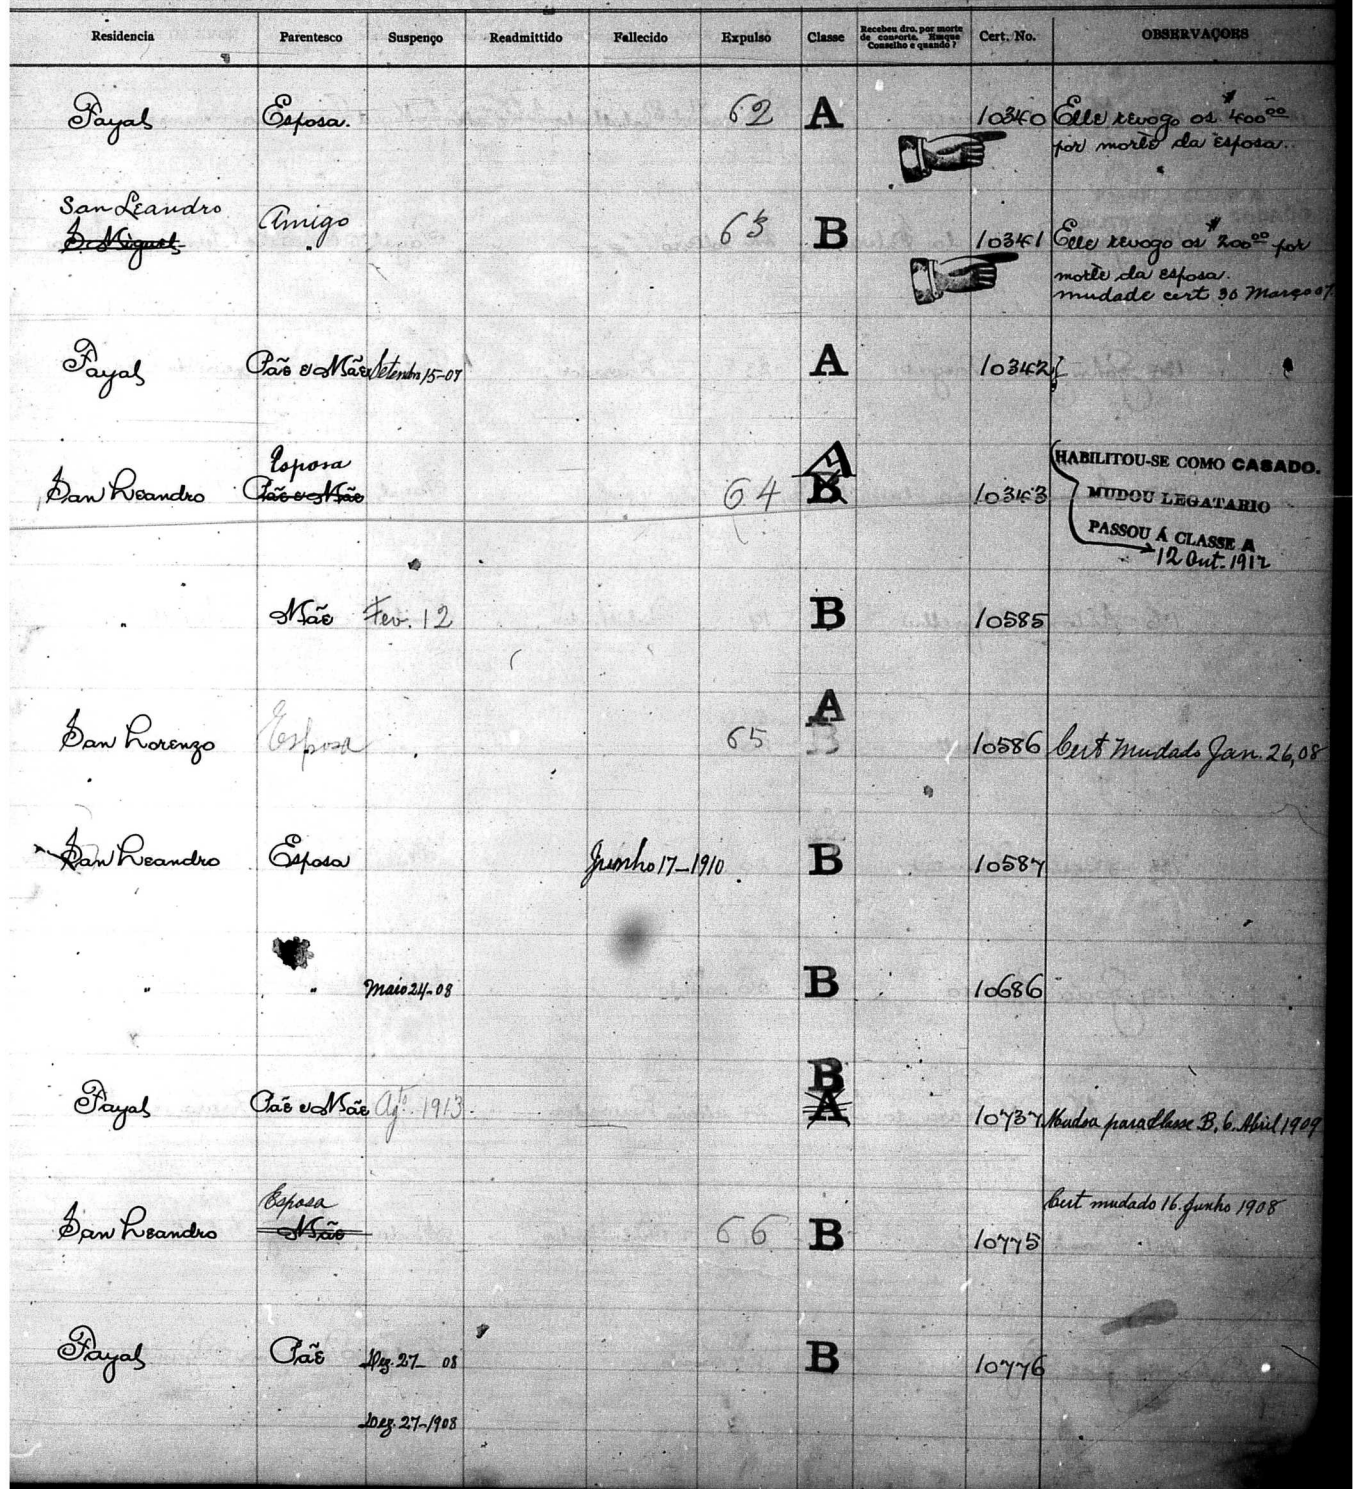 Residencia Parentesco Suspenço Readmittido Fallecido Expulso Classe Recebeu dro. por morte de consorte. Emque Conselho e quando? Cert. No. OBSERVAÇOES
Fayal Esposa. 62 A 10340 Elle revogo os $400.00
por morte da esposa.
San Leandro Amigo
S. Miguel " 63 B 10341 Elle revogo os $200.00 por
morte da esposa.
mudade cert 30 Março 07.
Fayal Pãe e Mãe Setembr 15-07 A 10342
Esposa A HABILITOU-SE COMO CASADO.
San Leandro Pãe e Mãe 64 B 10343 MUDOU LEGATARIO
PASSOU Á CLASSE A
12 Out. 1912
" Mãe Fev. 12 B 10585
A
San Lorenzo Esposa 65 B 10586 Cert Mudado Jan. 26, 08
San Leandro Esposa Junho 17-1910 B 10587
" " Maio 24-08 B 10686
B
Fayal Pãe e Mãe Agto. 1913 A 10737 Mudoa para Classe B, 6. Abril 1909
Esposa Cert mudado 16. Junho 1908
San Leandro Mãe 66 B 10775
Fayal Pãe Dez. 27- 08 B 10776
Dez. 27-1908